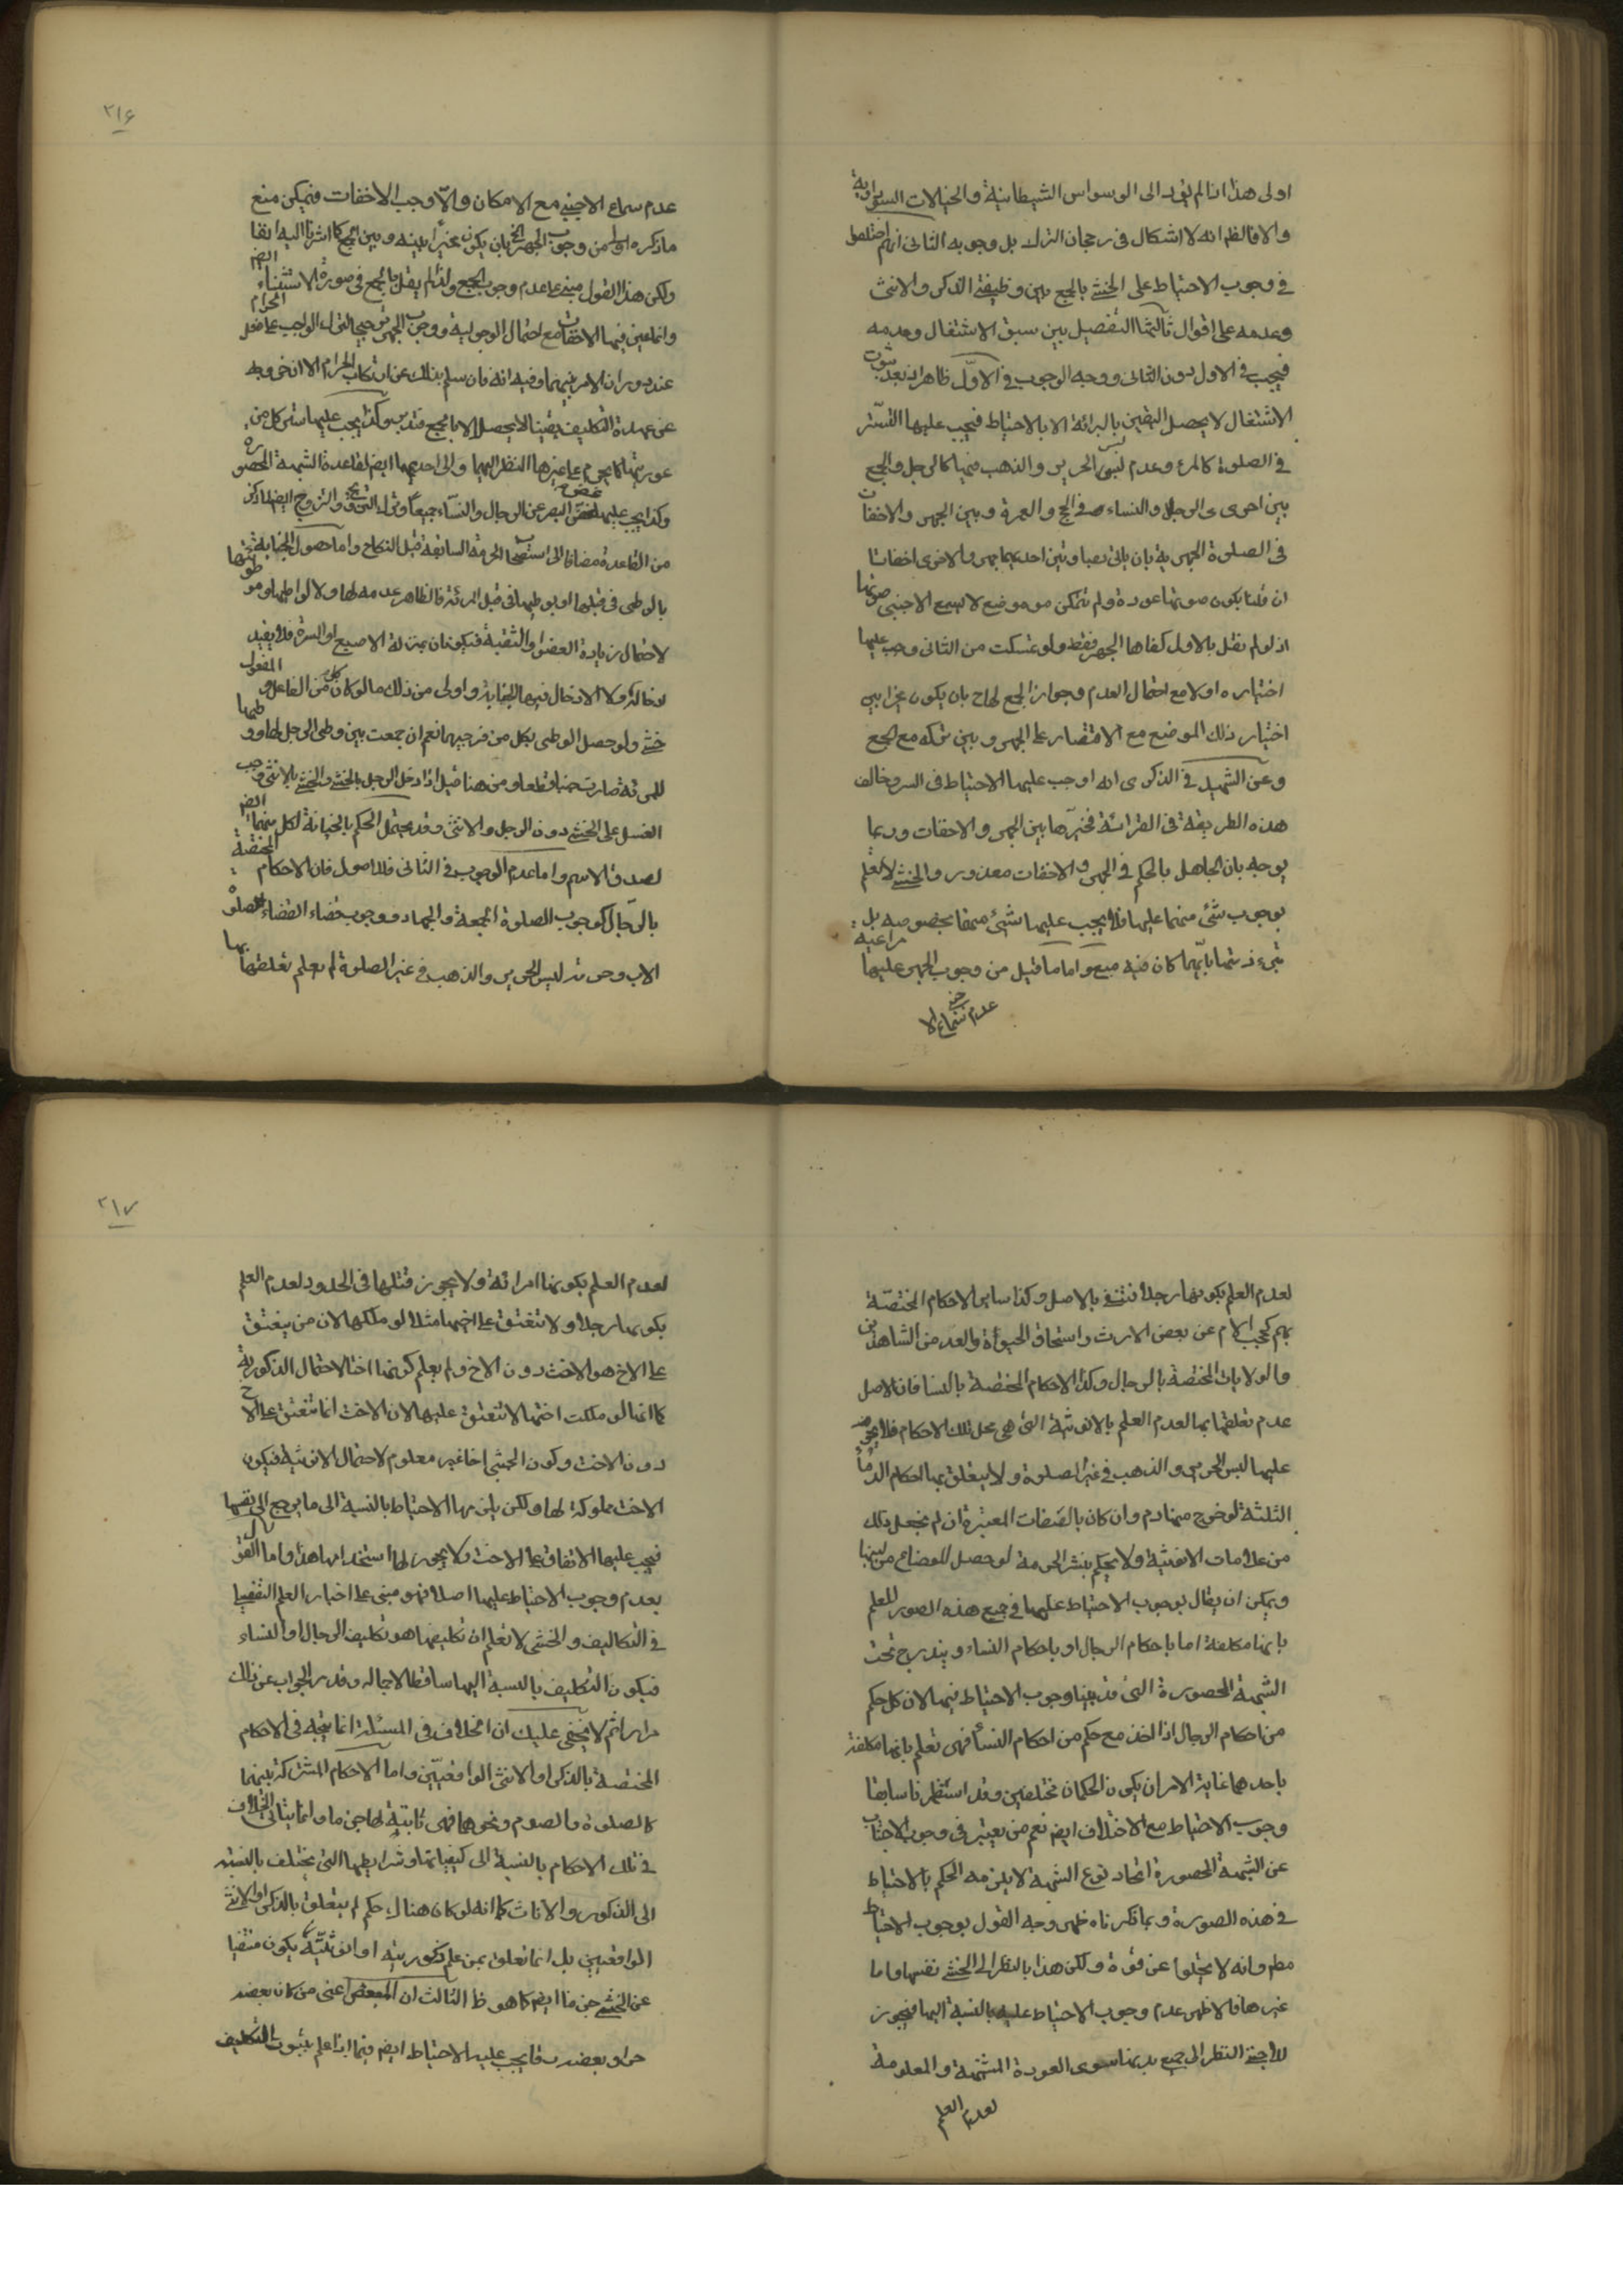 اولى هذا اذا لم يؤد الى الوسواس الشيطانية والخيالات السوداوية
والا فالظ انه لا اشكال فى رجحان الترك بل وجوبه الثانى انهم اختلفوا
فى وجوب الاحتياط على الخنثى بالجمع بين وظيفتى الذكر والانثى
وعدمه على اقوال ثالثها التفصيل بين سبق الاشتغال وعدمه
فيجب فى الاول دون الثانى ووجه الوجوب فى الاول ظاهر اذ بعد ثبوت
الاشتغال لا يحصل اليقين بالبرائة الا بالاحتياط فيجب عليها التستر
فى الصلوة كالمرءة وعدم لبس الحرير والذهب فيها كالرجل والجمع
بين احرامى الرجال والنساء فى الحج والعمرة وبين الجهر والاخفات
فى الصلوة الجهرية بان ياتى بصلوتين احديهما جهرا والاخرى اخفاتا
ان قلنا بكون صوتها عورة ولم تتمكن من موضع لا يسمع الاجنبى صوتها
اذ لو لم نقل بالاول كفاها الجهر فقط ولو تمكنت من الثانى وجب عليها
اختياره اولا مع احتمال العدم وجواز الجمع لها ح بان يكون مخيرا بين
اختيار ذلك الموضع مع الاقتصار على الجهر وبين تركه مع الجمع
وعن الشهيد فى الذكرى انه اوجب عليها الاحتياط فى الستر وخالف
هذه الطريقة فى القرائة فخيرها بين الجهر والاخفات وربما
يوجه بان الجاهل بالحكم فى الجهر والاخفات معذور والخنثى لا تعلم
بوجوب شئ منهما عليها فلا يجب عليها شيئ منهما بخصوصه بل
تبرء ذمتها بايهما كان فيه منع واما ما قيل من وجوب الجهر عليها مراعية
عدم سماع الاجنبى
٢١۶
عدم سماع الاجنبى مع الامكان والا وجب الاخفات فيمكن منع
ما ذكره اولا من وجوب الجهر ح بان يكون مخيرا بينه وبين الجمع كما اشرنا اليه انفا
ولكن هذا القول مبنى على عدم وجوب الجمع ولذا لم يقل بالجمع فى صورة الاستثناء ايض
وانما عين فيها الاخفات مع احتمال الوجوبية ووجوب الجهر ترجيحا لترك الواجب على فعل الحرام
عند دوران الامر بينهما وفيه انه فان سلم بذلك عن ارتكاب الحرام الا ان خروجه
عن عهدة التكليف يقينا لا يحصل الا بالجمع فتدبر وكذا يجب عليها ستر كل من
عورتيها كما يحرم على غيرها النظر اليهما والى احديهما ايض لقاعدة الشبهة المحصورة
وكذا يجب عليها غض البصر عن الرجال والنساء جميعا وترك التزويج والتزوج ايض لما ذكر
من القاعدة مضافا الى استصحاب الحرمة السابقة قبل النكاح واما حصول الجنابة
بالوطى فى قبلها او بوطيها فى قبل امرئة فالظاهر عدمه لها ولا لواطيها وموطوئتها
لاحتمال زيادة العضو والثقبة فيكونان بمنزلة الاصبع او السرة فلا يفيد
ادخاله ولا الادخال فيها الجنابة واولى من ذلك ما لو كان كل من الفاعل والمفعول
خنثى ولو حصل الوطى بكل من فرجيها نعم ان جمعت بين وطى الرجل لها ووطيها
للمرئة صارت جنبا قطعا ومن هنا قيل اذا دخل الرجل بالخنثى والخنثى بالانثى وجب
الغسل على الخنثى دون الرجل والانثى وقد يحتمل الحكم بالجنابة لكل منهما ايض
لصدق الاسم واما عدم الوجوب فى الثانى فللاصول فان الاحكام المختصة
بالرجال كوجوب الصلوة الجمعة والجهاد ووجوب قضاء الصلوة
الاب وحرمة لبس الحرير والذهب فى غير الصلوة لم يعلم تعلقها بها
لعدم العلم بكونها رجلا فتنتفى بالاصل وكذا ساير الاحكام المختصة
بهم كحجب الام عن بعض الارث واستحقاق الحبوة والعد من الشاهدين
والولايات المختصة بالرجال وكذا الاحكام المختصة بالنسا فان الاصل
عدم تعلقها بها لعدم العلم بالانوثية التى هى محل تلك الاحكام فلا يحرم
عليها لبس الحرير والذهب فى غير الصلوة ولا يتعلق بها احكام الدماء
الثلثة لو خرج منها دم وان كان بالصفات المعتبرة ان لم نجعل ذلك
من علامات الانوثية ولا يحكم بنشر الحرمة لو حصل للرضاع من لبنها
ويمكن ان يقال بوجوب الاحتياط عليها فى جميع هذه الصور للعلم
بانها مكلفة اما باحكام الرجال او باحكام النساء ويندرج تحت
الشبهة المحصورة التى قد بينا وجوب الاحتياط فيها لان كل حكم
من احكام الرجال اذا اخذ مع حكم من احكام النسأ فهى تعلم بانها مكلفة
باحدهما غاية الامر ان يكون الحكمان مختلفين وقد استظهرنا سابقا
وجوب الاحتياط مع الاختلاف ايض نعم من يعتبر فى وجوب الاجتناب
عن الشبهة المحصورة اتحاد نوع الشبهة لا يلزمه الحكم بالاحتياط
فى هذه الصورة وبما ذكرناه ظهر وجه القول بوجوب الاحتياط
مطم وانه لا يخلوا عن قوة ولكن هذا بالنظر الى الخنثى نفسها واما
غيرها فالاظهر عدم وجوب الاحتياط عليه بالنسبة اليها فيجوز
للاجنبى النظر الى جميع بدنها سوى العورة المشتبهة والمعلومة
لعدم العلم
٢١٧
لعدم العلم بكونها امرائة ولا يجوز قتلها فى الحدود لعدم العلم
بكونها رجلا ولا تنعتق على اخيها مثلا لو ملكها لان من ينعتق
على الاخ هو الاخت دون الاخ ولم يعلم كونها اختا لاحتمال الذكورية
كما انها لو ملكت اختها لا تنعتق عليها لان الاخت انما تنعتق على الاخ
دون الاخت وكون الخنثى اخا غير معلوم لاحتمال الانوثية فيكون
الاخت مملوكة لها ولكن يلزمها الاحتياط بالنسبة الى ما يرجع الى نفسها
فيجب عليها الانفاق على الاخت ولا يجوز لها استخدامها هذا واما القول
بعدم وجوب الاحتياط عليها اصلا فهو مبنى على اعتبار العلم التفصيلى
فى التكاليف والخنثى لا تعلم ان تكليفها هو تكليف الرجال او النساء
فيكون التكليف بالنسبة اليها ساقطا لاجماله وقد مر الجواب عن ذلك
مرارا ثم لا يخفى عليك ان الخلاف فى المسئلة انما يتجه فى الاحكام
المختصة بالذكر او الانثى الواقعيين واما الاحكام المشتركة بينهما
كالصلوة والصوم ونحوهما فهى ثابتة لها جزما وانما يتاتى الخلاف
فى تلك الاحكام بالنسبة الى كيفياتها وشرايطها التى يختلف بالنسبة
الى الذكور والاناث كما انه لو كان هناك حكم لم يتعلق بالذكر او الانثى
الواقعيين بل انما تعلق بمن علم ذكوريته او انوثيته يكون منتفيا
عن الخنثى جزما ايض كما هو ظ الثالث ان المبعض اعنى من كان بعضه
حرا وبعضه رقا يجب عليه الاحتياط ايض فيما اذا علم بثبوت التكليف